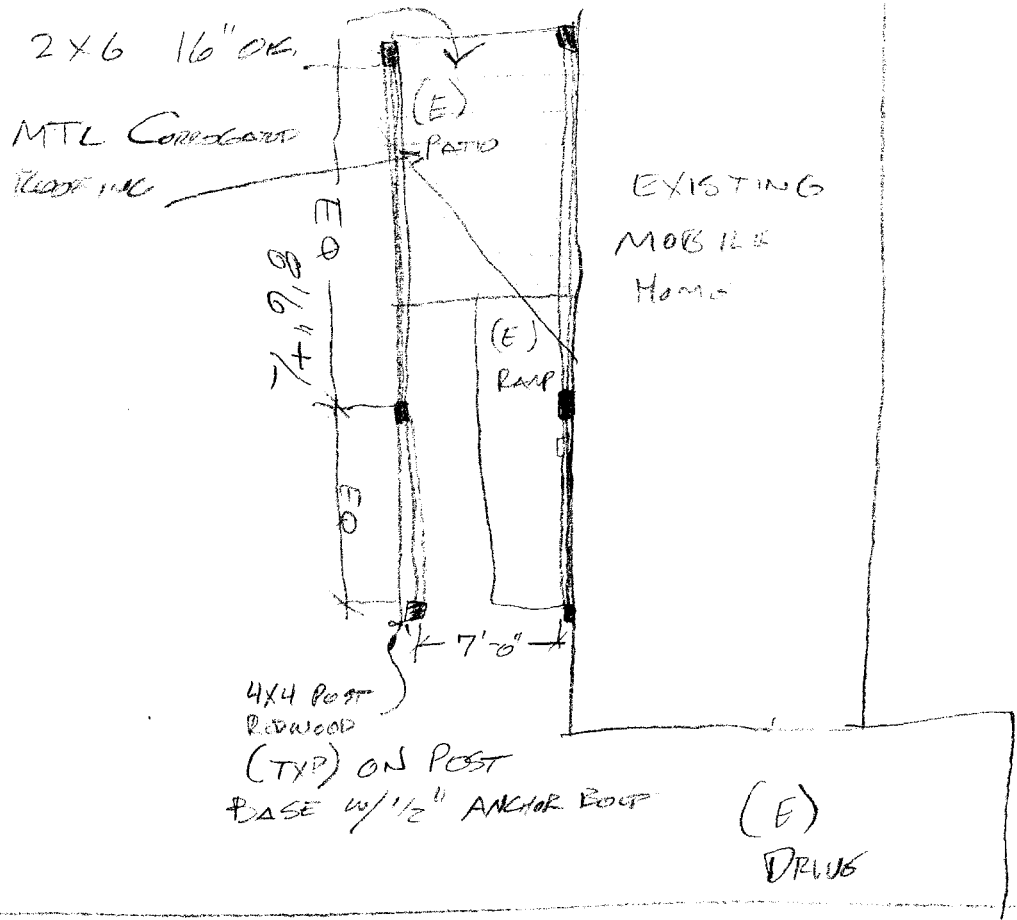 2X6 16" OC
MTL CORROGATED
ROOFING
(E)
PATIO
EQ
8'6"+/-
EXISTING
MOBILE
HOME
(E)
RAMP
EQ
7'-0"
4X4 POST
REDWOOD
(TYP) ON POST
BASE W/ 1/2" ANCHOR BOLT
(E)
DRIVE